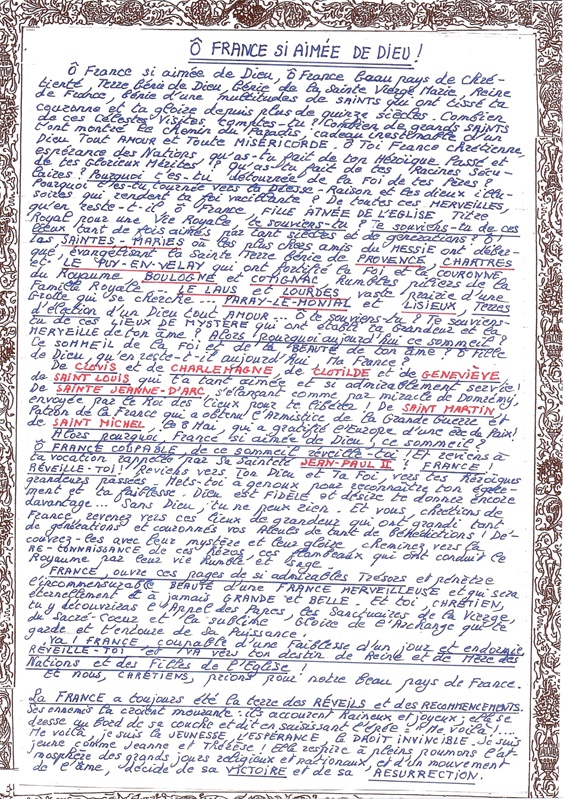 Ô FRANCE SI AIMÉE DE DIEU !
Ô France si aimée de Dieu, Ô France beau pays de Chré-
tienté, Terre bénie de Dieu, bénie de la Sainte Vierge Marie, Reine
de France, bénie d'une multitudes de SAINTS qui ont tissé ta
couronne et ta gloire depuis plus de quinze siècles. Combien
de ces Célestes Visites comptes-tu ? Combien de grands SAINTS
t'ont montré le chemin du Paradis, cadeau aimable d'un
Dieu Tout AMOUR et Toute MISÉRICORDE. Ô Toi France chrétienne,
espérance des Nations qu'as-tu fait de ton Héroïque Passé et
de tes Glorieux Mérites ? Qu'as-tu fait de tes Racines Sécu-
laires ? Pourquoi t'es-tu détournée de la Foi de tes Pères ?
Pourquoi t'es-tu tournée vers la Déesse-Raison et les dieux illu-
soires qui rendent ta foi vacillante ? De toutes ces MERVEILLES,
qu'en reste-t-il Ô France, FILLE AÎNÉE DE L'EGLISE Titre
Royal pour une Vie Royale, te souviens-tu ? Te souviens-tu de ces
lieux tant de fois aimés par tant de siècles et de générations ? Ô !
las SAINTES-MARIES où les plus chers amis du MESSIE ont débar-
qué, évangélisant ta Sainte Terre bénie de PROVENCE, CHARTRES
et LE PUY-EN-VELAY qui ont fortifié la Foi et la COURONNE
du Royaume, BOULOGNE et COTIGNAC humbles piliers de la
Famille Royale, LE LAUS et LOURDES vaste prairie d'une
Grotte qui se cherche... PARAY-LE-MONIAL et LISIEUX, Terres
d'élection d'un Dieu tout AMOUR... Ô te souviens-tu, Te souviens-
tu de ces LIEUX DE MYSTÈRE qui ont établi ta Grandeur et la
MERVEILLE de ton âme ? Alors pourquoi aujourd'hui ce sommeil ?
Ce SOMMEIL de la Foi et de la BEAUTÉ de ton âme ? Ô Fille
de Dieu, qu'en reste-t-il aujourd'hui, Ma France ?
De CLOVIS et de CHARLEMAGNE, de CLOTILDE et de GENEVIÈVE
de SAINT LOUIS qui t'a tant aimée et si admirablement servie !
De SAINTE JEANNE D'ARC, s'élançant comme par miracle de Domrémy,
envoyée par le Roi des Cieux pour te libérer ! De SAINT MARTIN,
Patron de la France qui a obtenu l'Armistice de la Grande Guerre et
de SAINT MICHEL, le 8 Mai, qui a gratifié l'Europe d'une ère de Paix !
Alors pourquoi, France si aimée de Dieu, ce sommeil ?
Ô FRANCE COUPABLE, de ce sommeil réveille-toi ! Et reviens à
ta vocation rappelée par Sa Sainteté JEAN-PAUL II : FRANCE !
RÉVEILLE-TOI ! Reviens vers Ton Dieu et Ta Foi, vers tes Héroïques
grandeurs passées. Mets-toi à genoux pour reconnaître ton égare-
ment et ta faiblesse. Dieu est FIDÈLE et désire te donner encore
davantage... Sans Dieu, tu ne peux rien. Et vous, chrétiens de
France, revenez vers ces lieux de grandeur qui ont grandi tant
de générations et couronnés vos Aïeuls de tant de bénédictions ! Dé-
couvrez-les avec leur mystère et leur gloire, cheminez vers la
RE-CONNAISSANCE de ces héros, ces flambeaux qui ont conduit le
Royaume par leur vie humble et sage.
FRANCE, ouvre ces pages de si admirables Trésors et pénètre
l'incommensurable BEAUTÉ d'une FRANCE MERVEILLEUSE et qui sera
éternellement et à jamais GRANDE et BELLE. Et toi, CHRÉTIEN,
tu y découvriras l'Appel des Papes, les Sanctuaires de la Vierge,
du Sacré-Cœur et la sublime Gloire de l'Archange qui te
garde et t'entoure de sa Puissance.
Va ! FRANCE, coupable d'une faiblesse d'un jour et endormie,
RÉVEILLE-TOI et VA vers ton destin de Reine et de Mère des
Nations et des Filles de l'Eglise !
Et nous, CHRÉTIENS, prions pour notre beau pays de France.
La FRANCE a toujours été la terre des RÉVEILS et des RECOMMENCEMENTS.
Ses ennemis la croient mourante : ils accourent haineux et joyeux ; elle se
dresse au bord de sa couche et dit en saisissant l'épée : "Me voilà !...
Me voilà, je suis la JEUNESSE, L'ESPÉRANCE, le DROIT INVINCIBLE. Je suis
jeune comme Jeanne et Thérèse ! Elle respire à pleins poumons l'at-
mosphère des grands jours religieux et nationaux, et d'un mouvement
de l'âme, décide de sa VICTOIRE et de sa RESURRECTION.